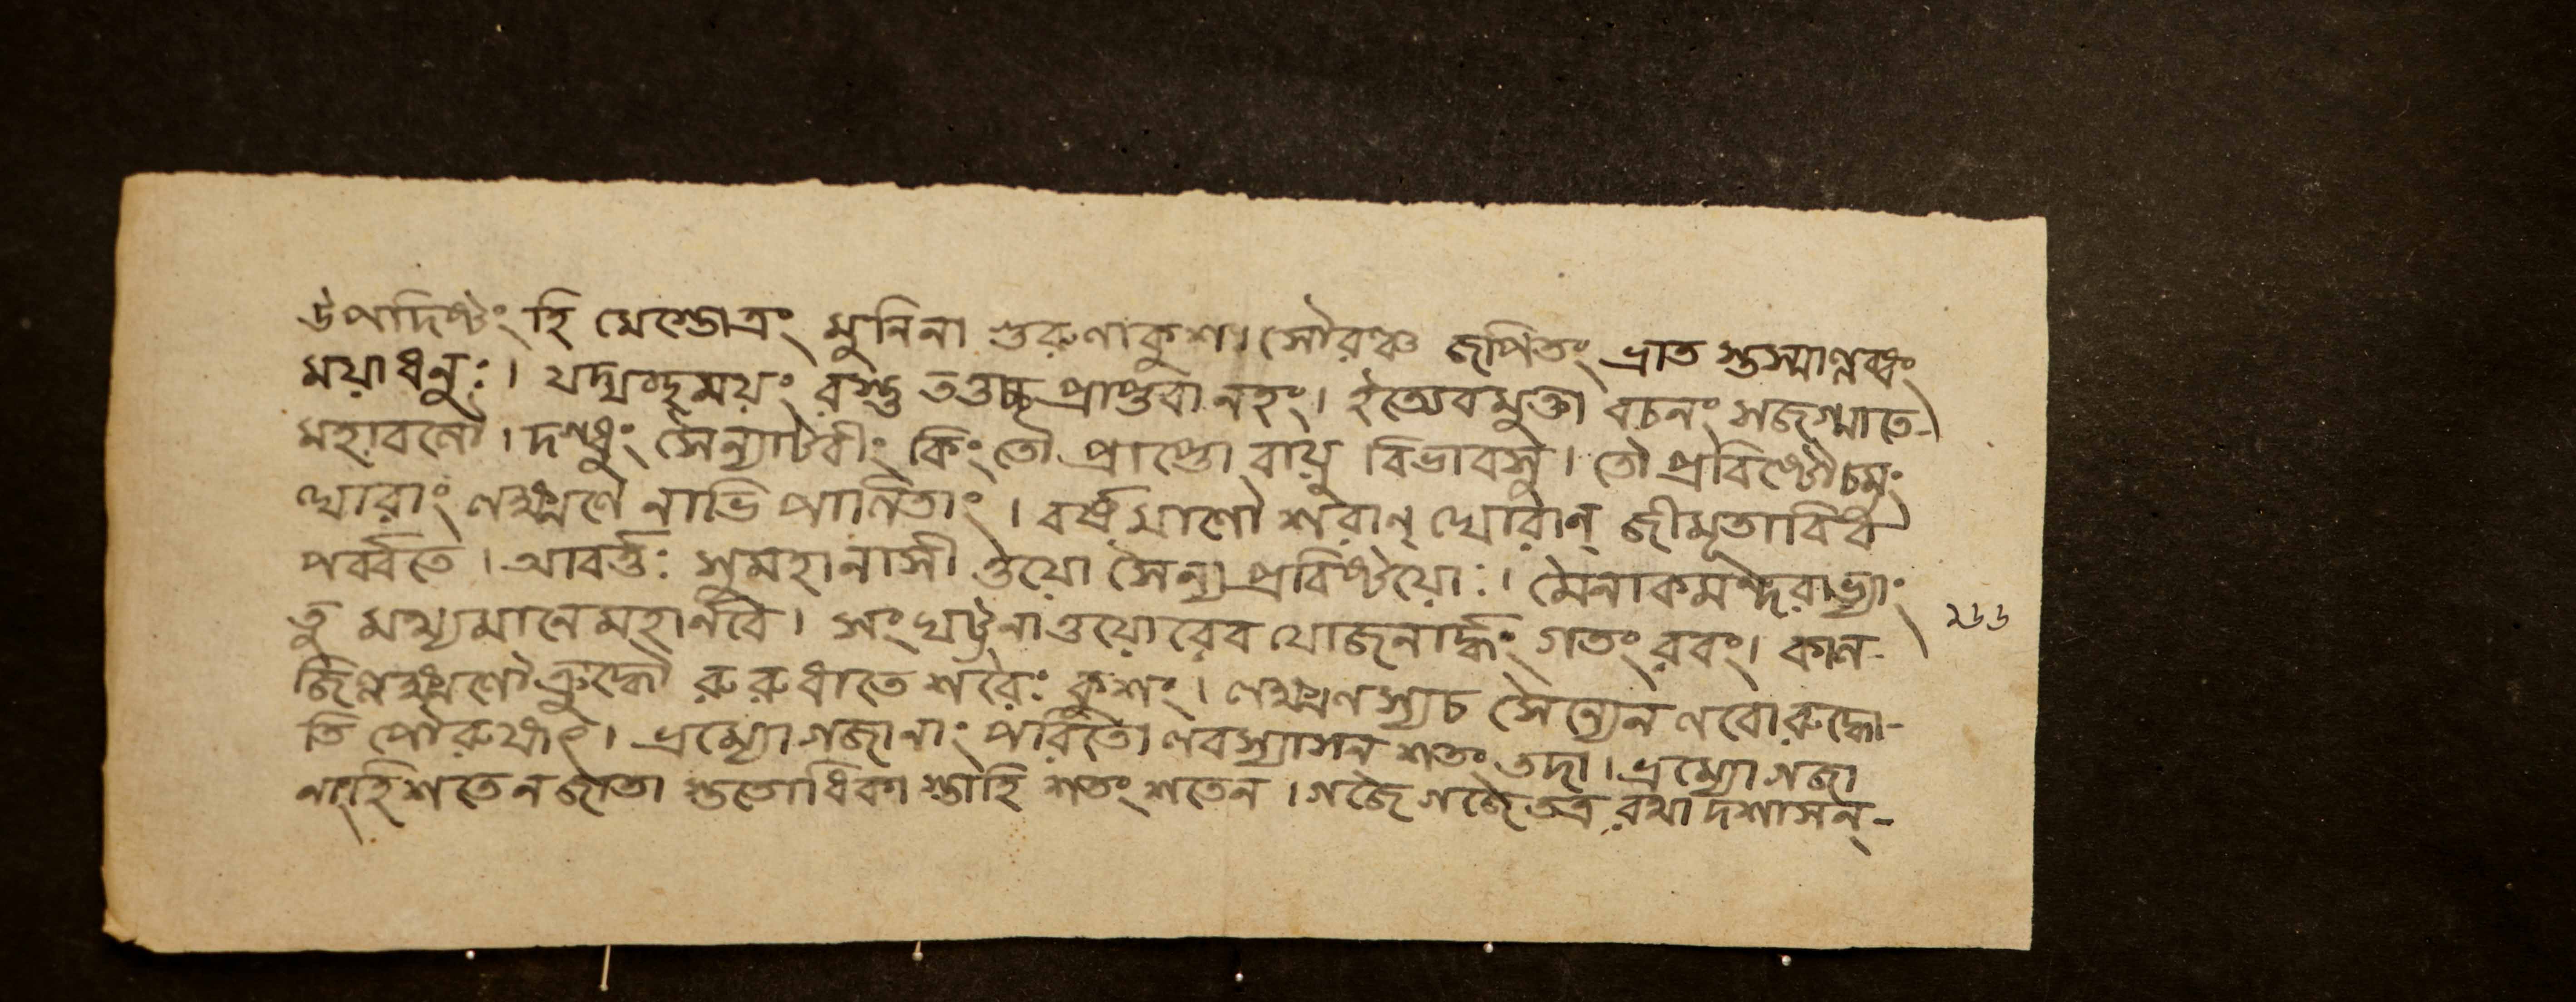 উপদিষ্টং হি মেস্তোত্রং মুনিনা গুরুণাকুশ। সৌরঞ্চ জপিতং ভ্রাত স্তস্মাল্লব্ধং
ময়াধনুঃ। যদ্যদ্দৃময়ং বস্তু তত্তচ্চ প্রাপ্তবা নহং। ইত্যেবমুক্তা বচনং সজগ্মাতে-
মহাবলৌ। দগ্ধুং সৈন্যাটবীং কিং তৌ প্রাপ্তৌ বায়ু বিভাবসু। তৌ প্রবিষ্টৌচমুং
ঘোরাং লক্ষ্মণে নাভি পালিতাং। বর্ষমাণৌ শরান্ ঘোরান্ জীমূতাবিব
পর্ব্বতে। আবর্ত্তঃ সুমহানাসী ত্তয়ো সৈন্য প্রবিষ্টয়োঃ। মৈনাকমন্দরাভ্যাং
তু মথ্যমানেমহার্ণবে। সংঘট্টনাত্তয়োরেব যোজনার্দ্ধং গতং রবং। কাল-
জিল্লক্ষ্মণৌক্রুদ্ধৌ রুরুধাতে শরৈঃ কুশং। লক্ষ্মণস্যচ সৈন্যেন লবোরুদ্ধো-
তি পৌরুষাৎ। ভ্রম্যো গজানাং পরিতো লবস্যাসন শতং তদা। ভ্রম্যোগজা
নাংহিশতেনজাতা স্ততোধিকা স্তাহি শতং শতেন। গজৈ গজৈতত্র রথাদশাসন্-
২৬৬